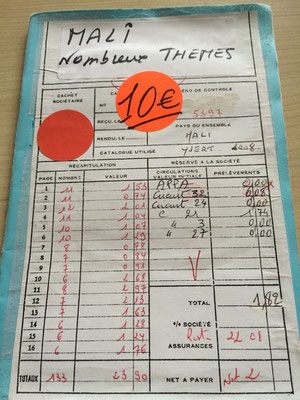 MALI
Nombreux THEMES
CACHET
SOCIÉTAIRE
NUMÉRO DE CONTROLE
10€
5397
REÇU LE
PAYS OU ENSEMBLE
RENDU LE
MALI
CATALOGUE UTILISÉ YVERT 2008
RÉCAPITULATION RÉSERVÉ A LA SOCIÉTÉ
PAGE NOMBRE VALEUR CIRCULATIONS VALEUR INITIALE PRÉLÈVEMENTS
1 11 1 53 APPA 0,00
2 11 0 74 Circuit 32 0,08
3 12 Circuit 24 0,00
4 11 1 04 C 21 1,74
5 10 1 07 " 3 0,00
6 10 1 29 " 27 0,00
7 8 0 78
8 7 0 84
9 7 0 91
10 6 2 68
11 8 2 97
12 7 2 13
13 7 1 63
14 6 1 28
15 6 1 24
16 6 1 76
TOTAL 1,82
% SOCIÉTÉ
ASSURANCES
22 08
TOTAUX 133 23 90 NET A PAYER